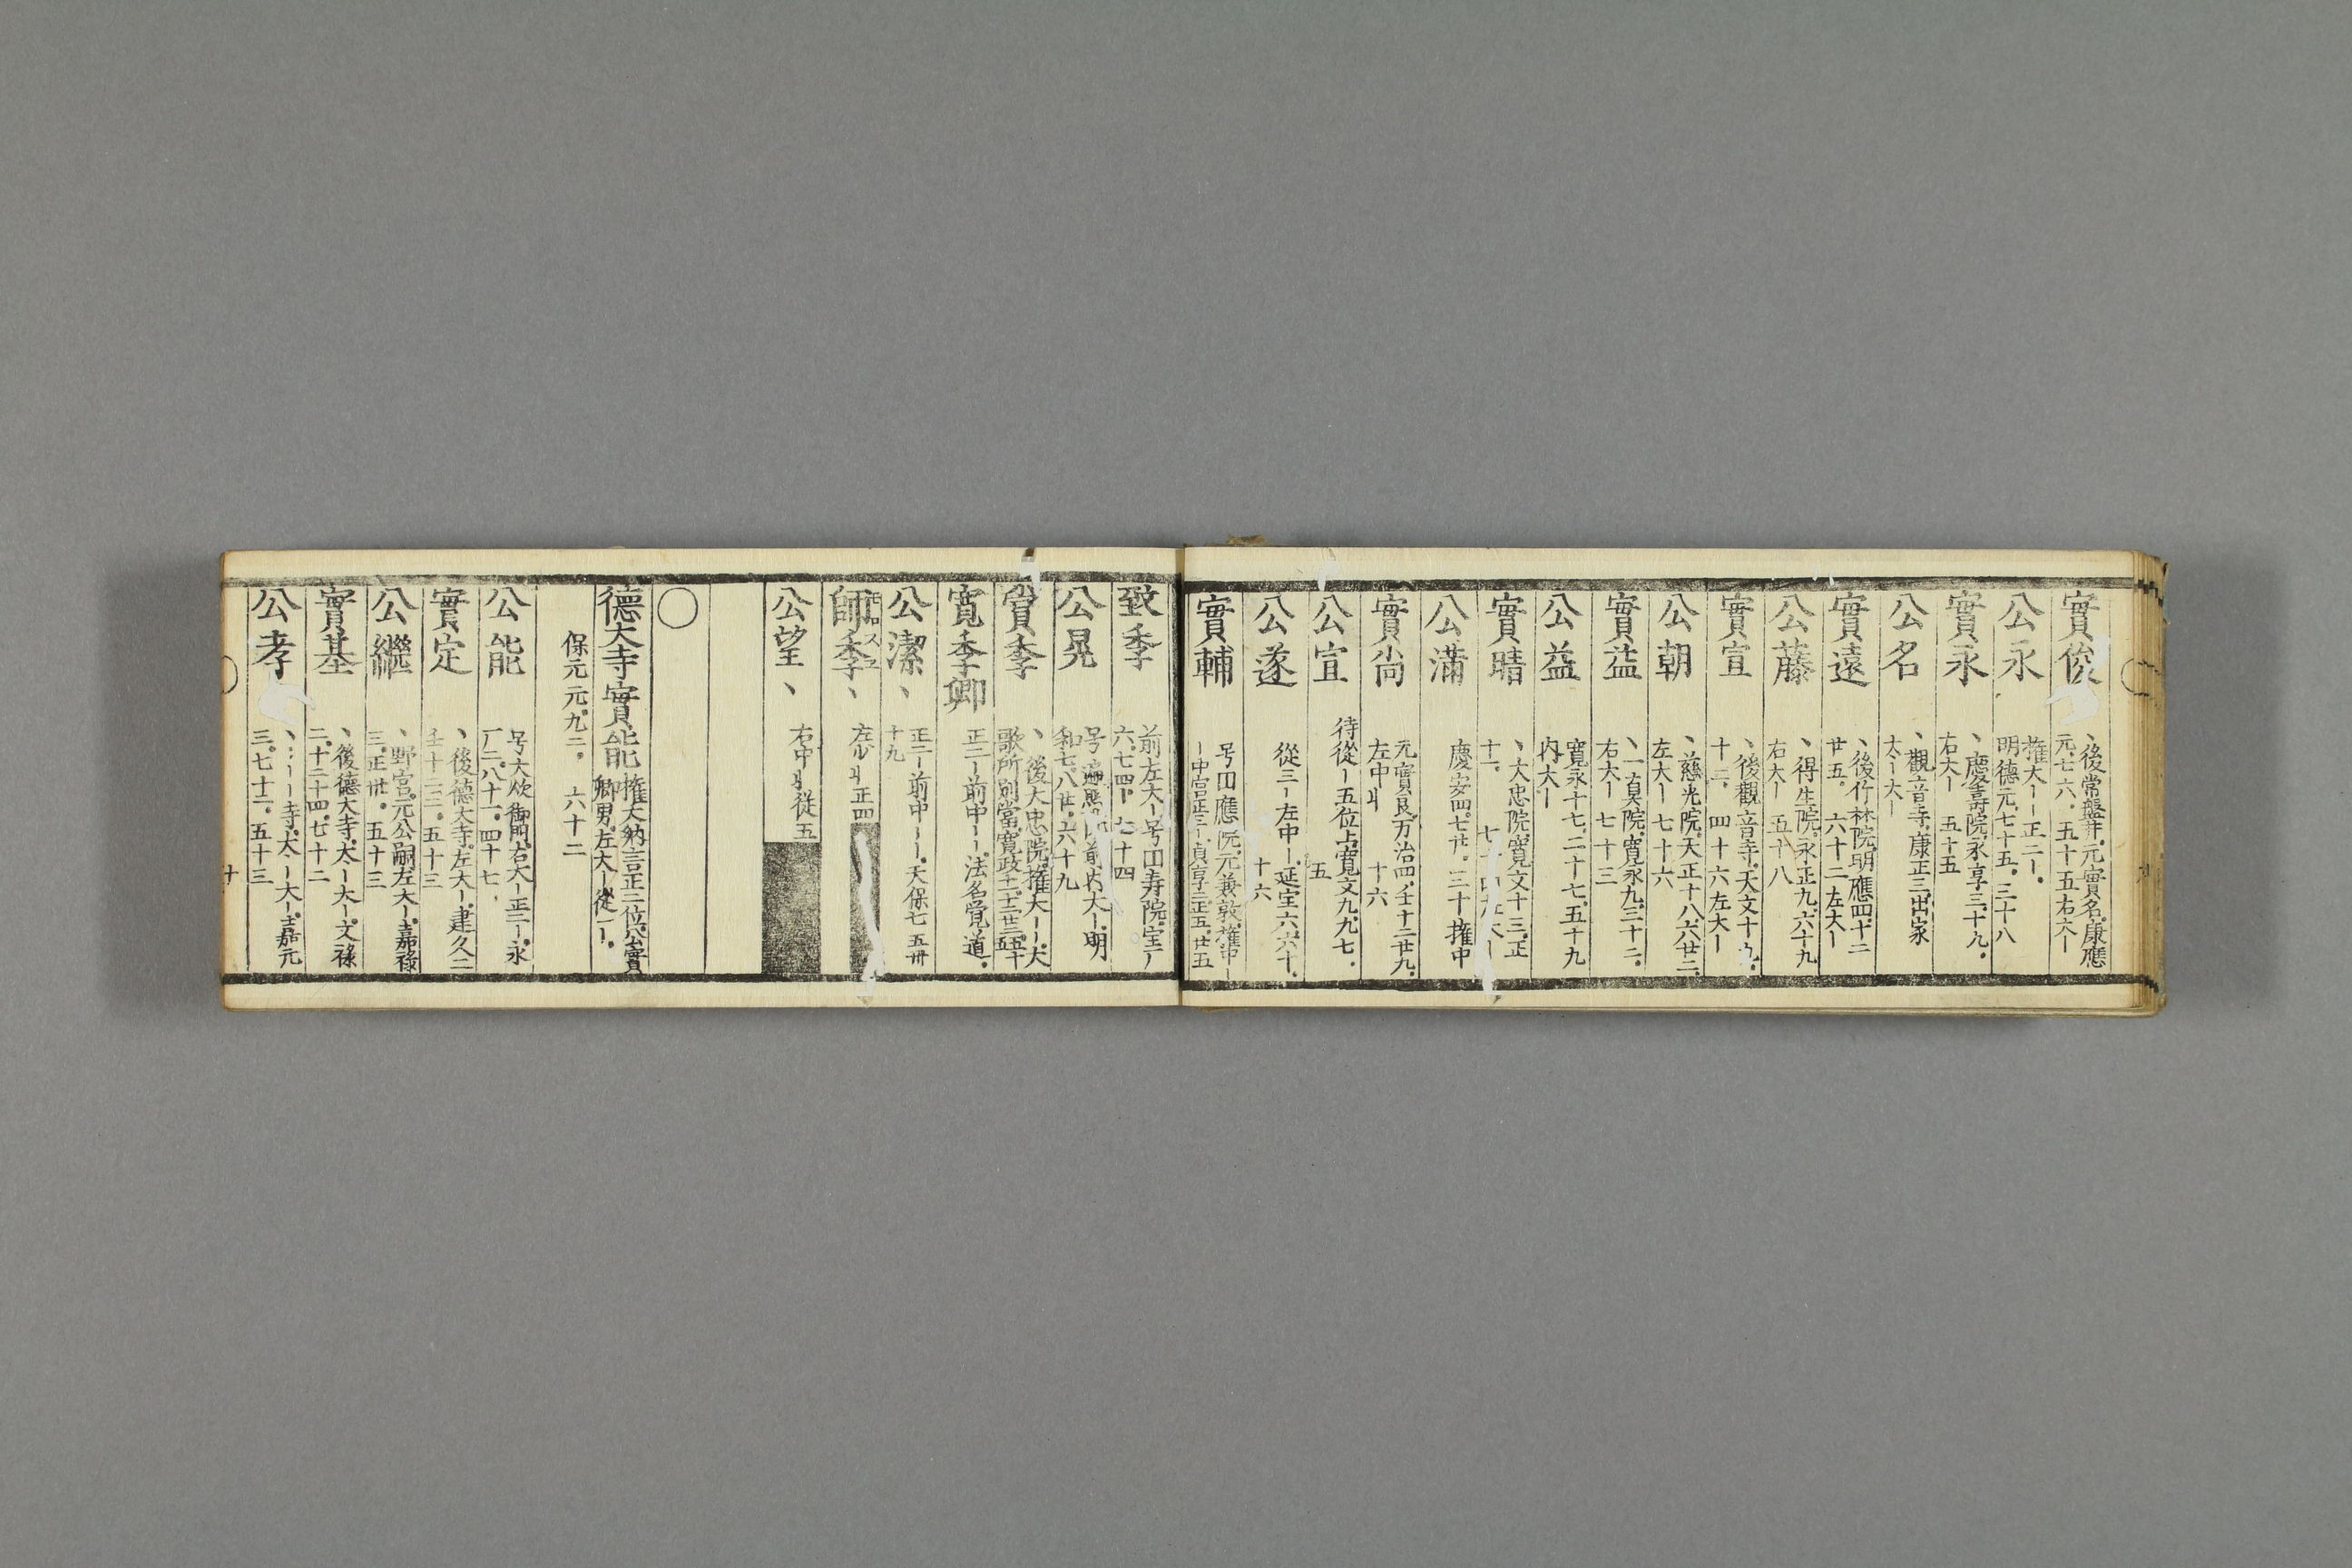 實俊
、後常盤井。元實名。康應
元七六。五十五右大ー
公永
権大ーー正二ー。
明德元七十五。三十八
實永
、慶壽院。永享三、十九。
右大ー　五十五
公名
、觀音寺。康正三、出家
太ー大ー
實遠
、後竹林院。明應四十二
廿五。　六十二左大ー
公藤
、得生院。永正九、六十九
右大ー　五十八
實宣
、後觀音寺。天文十九。
十二。　四十六左大ー
公朝
、慈光院。天正十八、六廿二。
左大ー　七十六
實益
、一真院。寛永九、三十二。
右大ー　七十三
公益
寛永十七、二十七、五十九
内大ー
實晴
、大忠院。寛文十三、正
十一。
公滿
慶安四。七廿。三十権中
實尚
元實良。万治四、壬十二廿九。
左中　十六
公宜
待從ー五位上寛文九、九、七。
五
公遂
從三ー左中ー。延宝六、六十。
十六
實輔
号円應院。元兼敦。権中ー
ー中宮
致季
前左大ー号円寿院。宝ー
六、七四ー　七十四
公晃
号遍照院前内大ー。明
和七、八廿。六十九
賞季
、後大忠院。権大ーー大
歌所別當。寛政十一
寛季卿
正二ー前中ーー。法名覚道。
公潔、
正二ー前中ーー。天保七五卅
十九
師季、
モロスユ
左少　正四
公望、
右中　従五
○
德大寺實能
権大納言正二位公實
卿男。左大ー從一ー。
保元元。九二。　六十二
公能
号大炊御門。右大ー正二ー永
厂二。八十一。四十七
實定
、後德大寺。左大ー。建久二
壬十二。　五十三
公繼
、野宮。元公嗣。左大ー。嘉祿
三。正卅。　五十三
實基
、後德大寺。太ー大ー。文禄
二。十二十四。七十二
公孝
寺。太ー大ー。嘉元
三。七十二。　五十三
十